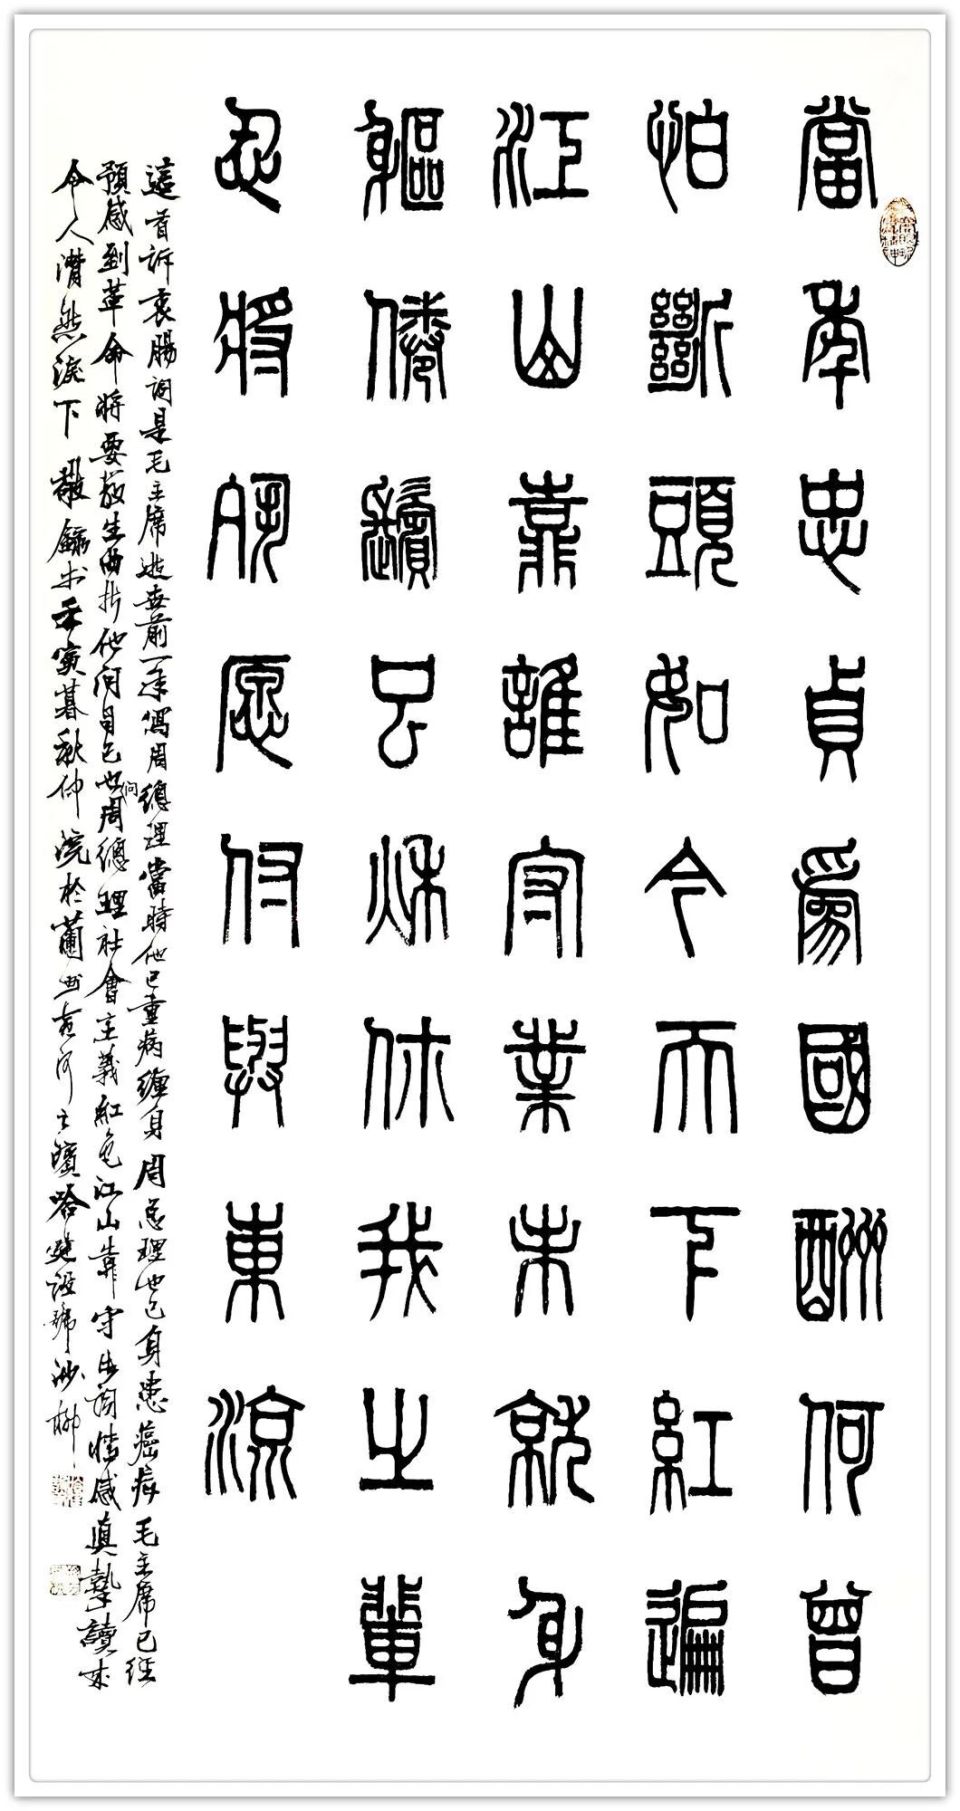 當年忠貞爲國酬何曾
怕斷頭如今天下紅遍
江山靠誰守業未就身
軀倦鬢已秋你我之輩
忍將夙愿付與東流
這首訴衷腸詞是毛主席逝世前一年寫周總理當時他已重病纏身周总理也已身患癌病毛主席已經
預感到革命將要發生曲折他问自己也问周總理社會主義紅色江山靠守此詞情感真摯讀來
令人潸然淚下敬錄出壬寅暮秋仲浣於蘭州黄河之濱哈建設號沙柳